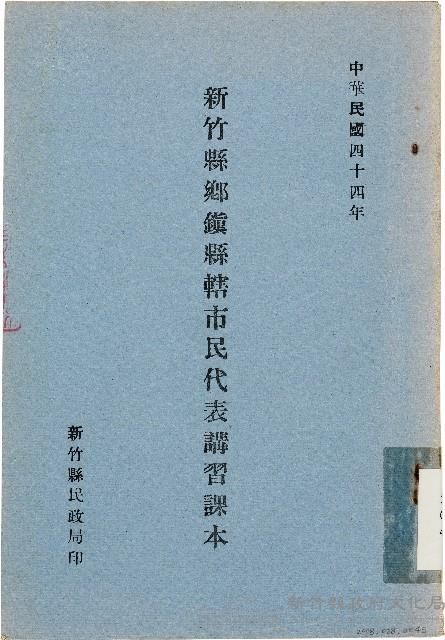 中華民國四十四年
新竹縣鄉鎮縣轄市民代表講習課本
新竹縣民政局印
新竹縣政府文化局